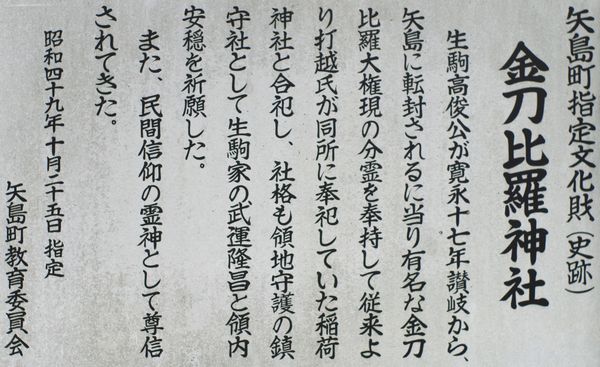 矢島町指定文化財（史跡）
金刀比羅神社
生駒高俊公が寛永十七年讃岐から、
矢島に転封されるに当り有名な金刀
比羅大権現の分霊を奉持して従来よ
り打越氏が同所に奉祀していた稲荷
神社と合祀し、社格も領地守護の鎮
守社として生駒家の武運隆昌と領内
安穏を祈願した。
また、民間信仰の霊神として尊信
されてきた。
昭和四十九年十月二十五日指定
矢島町教育委員会